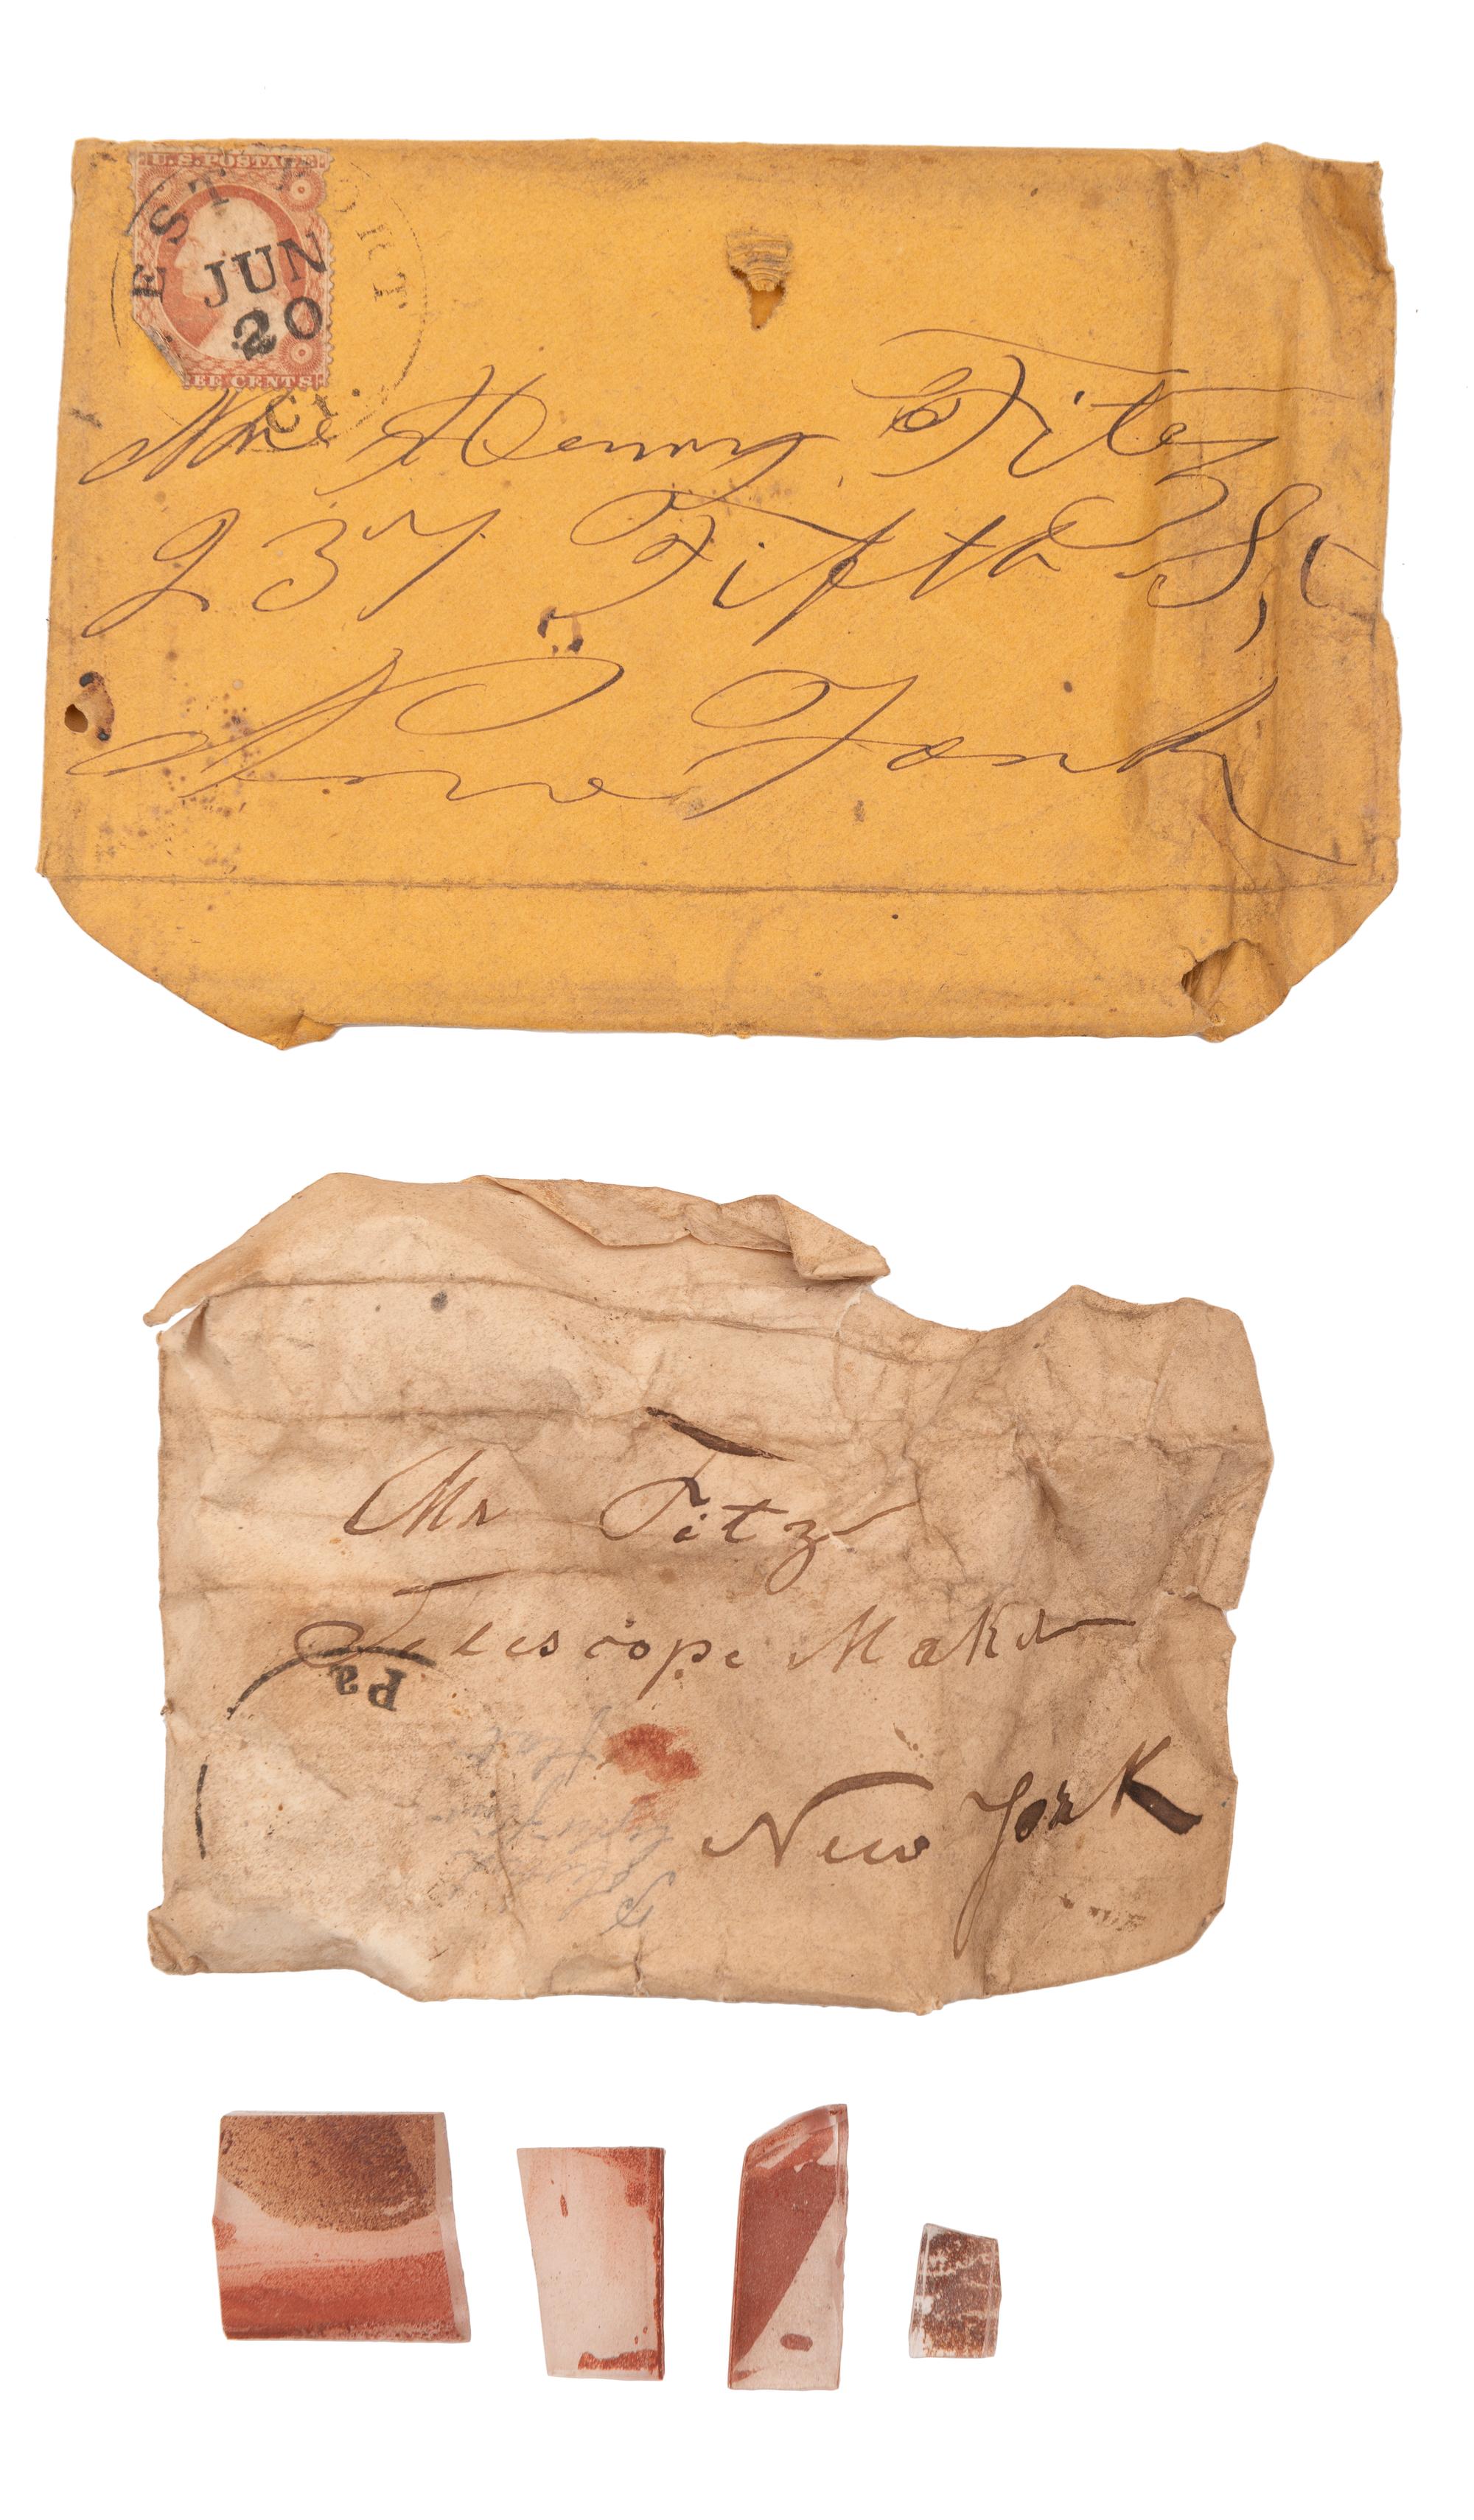 U.S. POSTAGE
EST PORT
JUN
20
CT.
EE CENTS
Mr Henry Fitz
237 Fifth St
New York
Mr Fitz
Telescope Maker
Pa
flat
New York